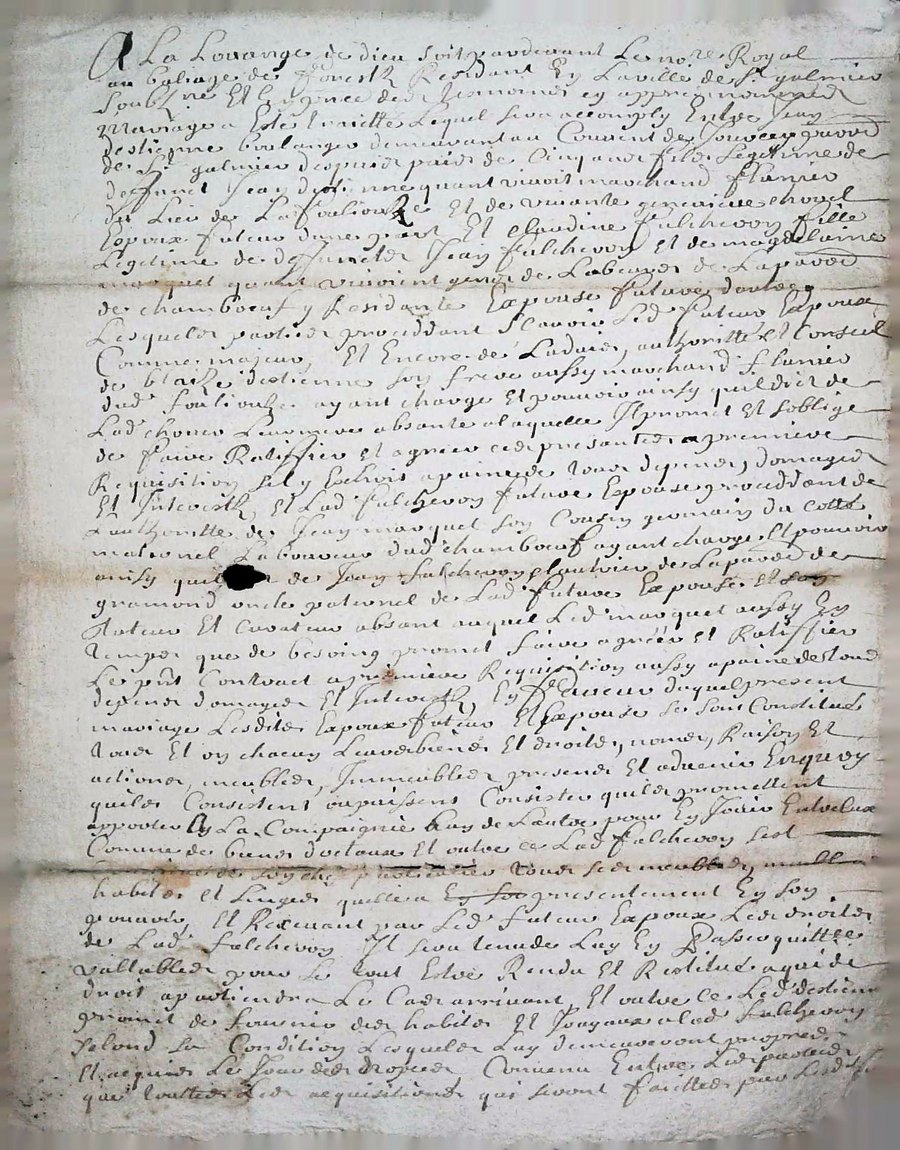 A La Louange de dieu soit pardevant Le no.re Royal
au baliage de forestz Residant En Laville de St galmier
soubsigné Et En presence des tesmoins cy apprés nommés
Mariage a Esté traitté Lequel sera accomply Entre Jean
destienne boulanger demeurant au Couvent de
de St galmier depuis paix de Cinq ans fils Legitime de
deffunct Jean destienne quant vivoit marchand
du Lieu de Lafouliouze Et de vivante genevieve chovel
Espoux futur dune part Et Claudine falchevon fille
Legitime de deffuncts Jean falchevon Et de magdelaine
marquet quant vivoient gens de Labeurs de Laparoe
de chambœuf y Residante Expouse future dautre
Lesquelles parties proceddant scavoir Led futur Expoux
Comme majeur, Et Encore de Ladvis, authoritté Et Conseil
de blaize destienne son frere aussy marchand
dud fouliouze ayant charge Et pouvoir ainsy quil dict de
Lad chovel Leur mere absante a laquelle Il promet Et soblige
de faire Ratiffier Et agréer ces presantes a premiere
Requisition sil y Escheoit a paine de tous depens, domages
Et Interestz, Et Lad falchevon future Expouse proceddent de
Lauthoritte de Jean marquet son Cousin germain du cotté
maternel Laboureur dud chambœuf ayant charge Et pouvoir
ainsy quil de Jean falchevon de Laparoe de
gramond oncle paternel de Lad future Expouse Et son
tuteur Et curateur absant auquel Led marquet aussy En
temps que de besoing promet faire agréer Et Ratiffier
Le pñt Contract a premiere Requisition aussy a paine de tous
depens domages Et Interestz, En faveur duquel present
mariage Lesdits Expoux futur Et Expouse se sont Constitués
tous Et un chacun Leurs biens Et droits, noms, Raisons Et
actions, meubles, Immeubles presens Et advenir Enquoy
quils Consistent ou puissent Consister quils promettent
apporter En La Compaignie Lun de Lautre pour En Jouir Entreeux
Comme de biens doctaux Et outre ce Lad falchevon sest
de son chef particulier tous ses meubles,
habits et Linges quelle a En son presentement En son
pouvoir, Et Recevant par Led futur Expoux Les droits
de Lad falchevon Il sera tenu de Luy En Passer quittce
vallables pour Le tout Estre Rendu Et Restitué a qui de
droit apartiendra Le Cas arrivant, Et outre ce Led destienne
promet de fournir des habits Et Joyaux a lad falchevon
selond sa Condition Lesquels Luy demeureront propres
Et acquis Le Jour des Convenu Entre Les parties
que touttes Les acquisitions qui seront faittes par